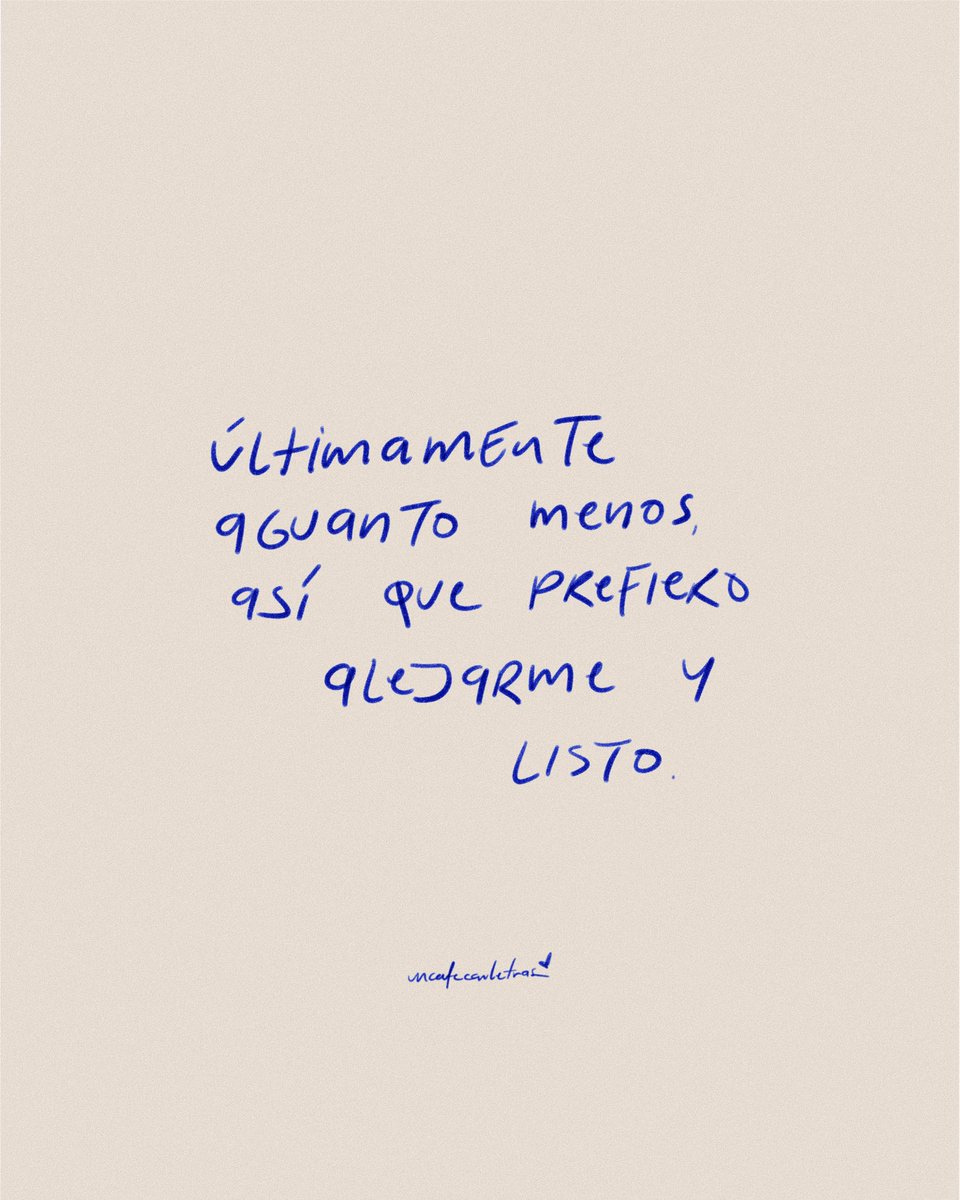 últimamente
aguanto menos,
así que prefiero
alejarme y
listo.
uncafeconletras